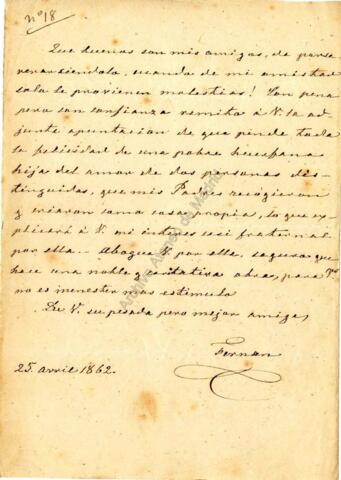 nº 18
Que buenos son mis amigos, de perse
verar siendolo, cuando de mi amistad
solo le provienen molestias! Con pena
pero con confianza remito á V. la ad
junta apuntacion de que pende toda
la felicidad de una pobre huerfana
hija del amor de dos personas dis-
tinguidas, que mis Padres recogieron
y criaron como cosa propia, lo que esp
licará á V. mi interes casi fraternal
por ella. - Abogue V. por ella, seguro que
hace una noble y caritativa obra, para V.
no es menester mas estimulo
De V. su pesada pero mejor amiga,
Fernan
25. avril 1862.
Archivo Ateneo de Madrid